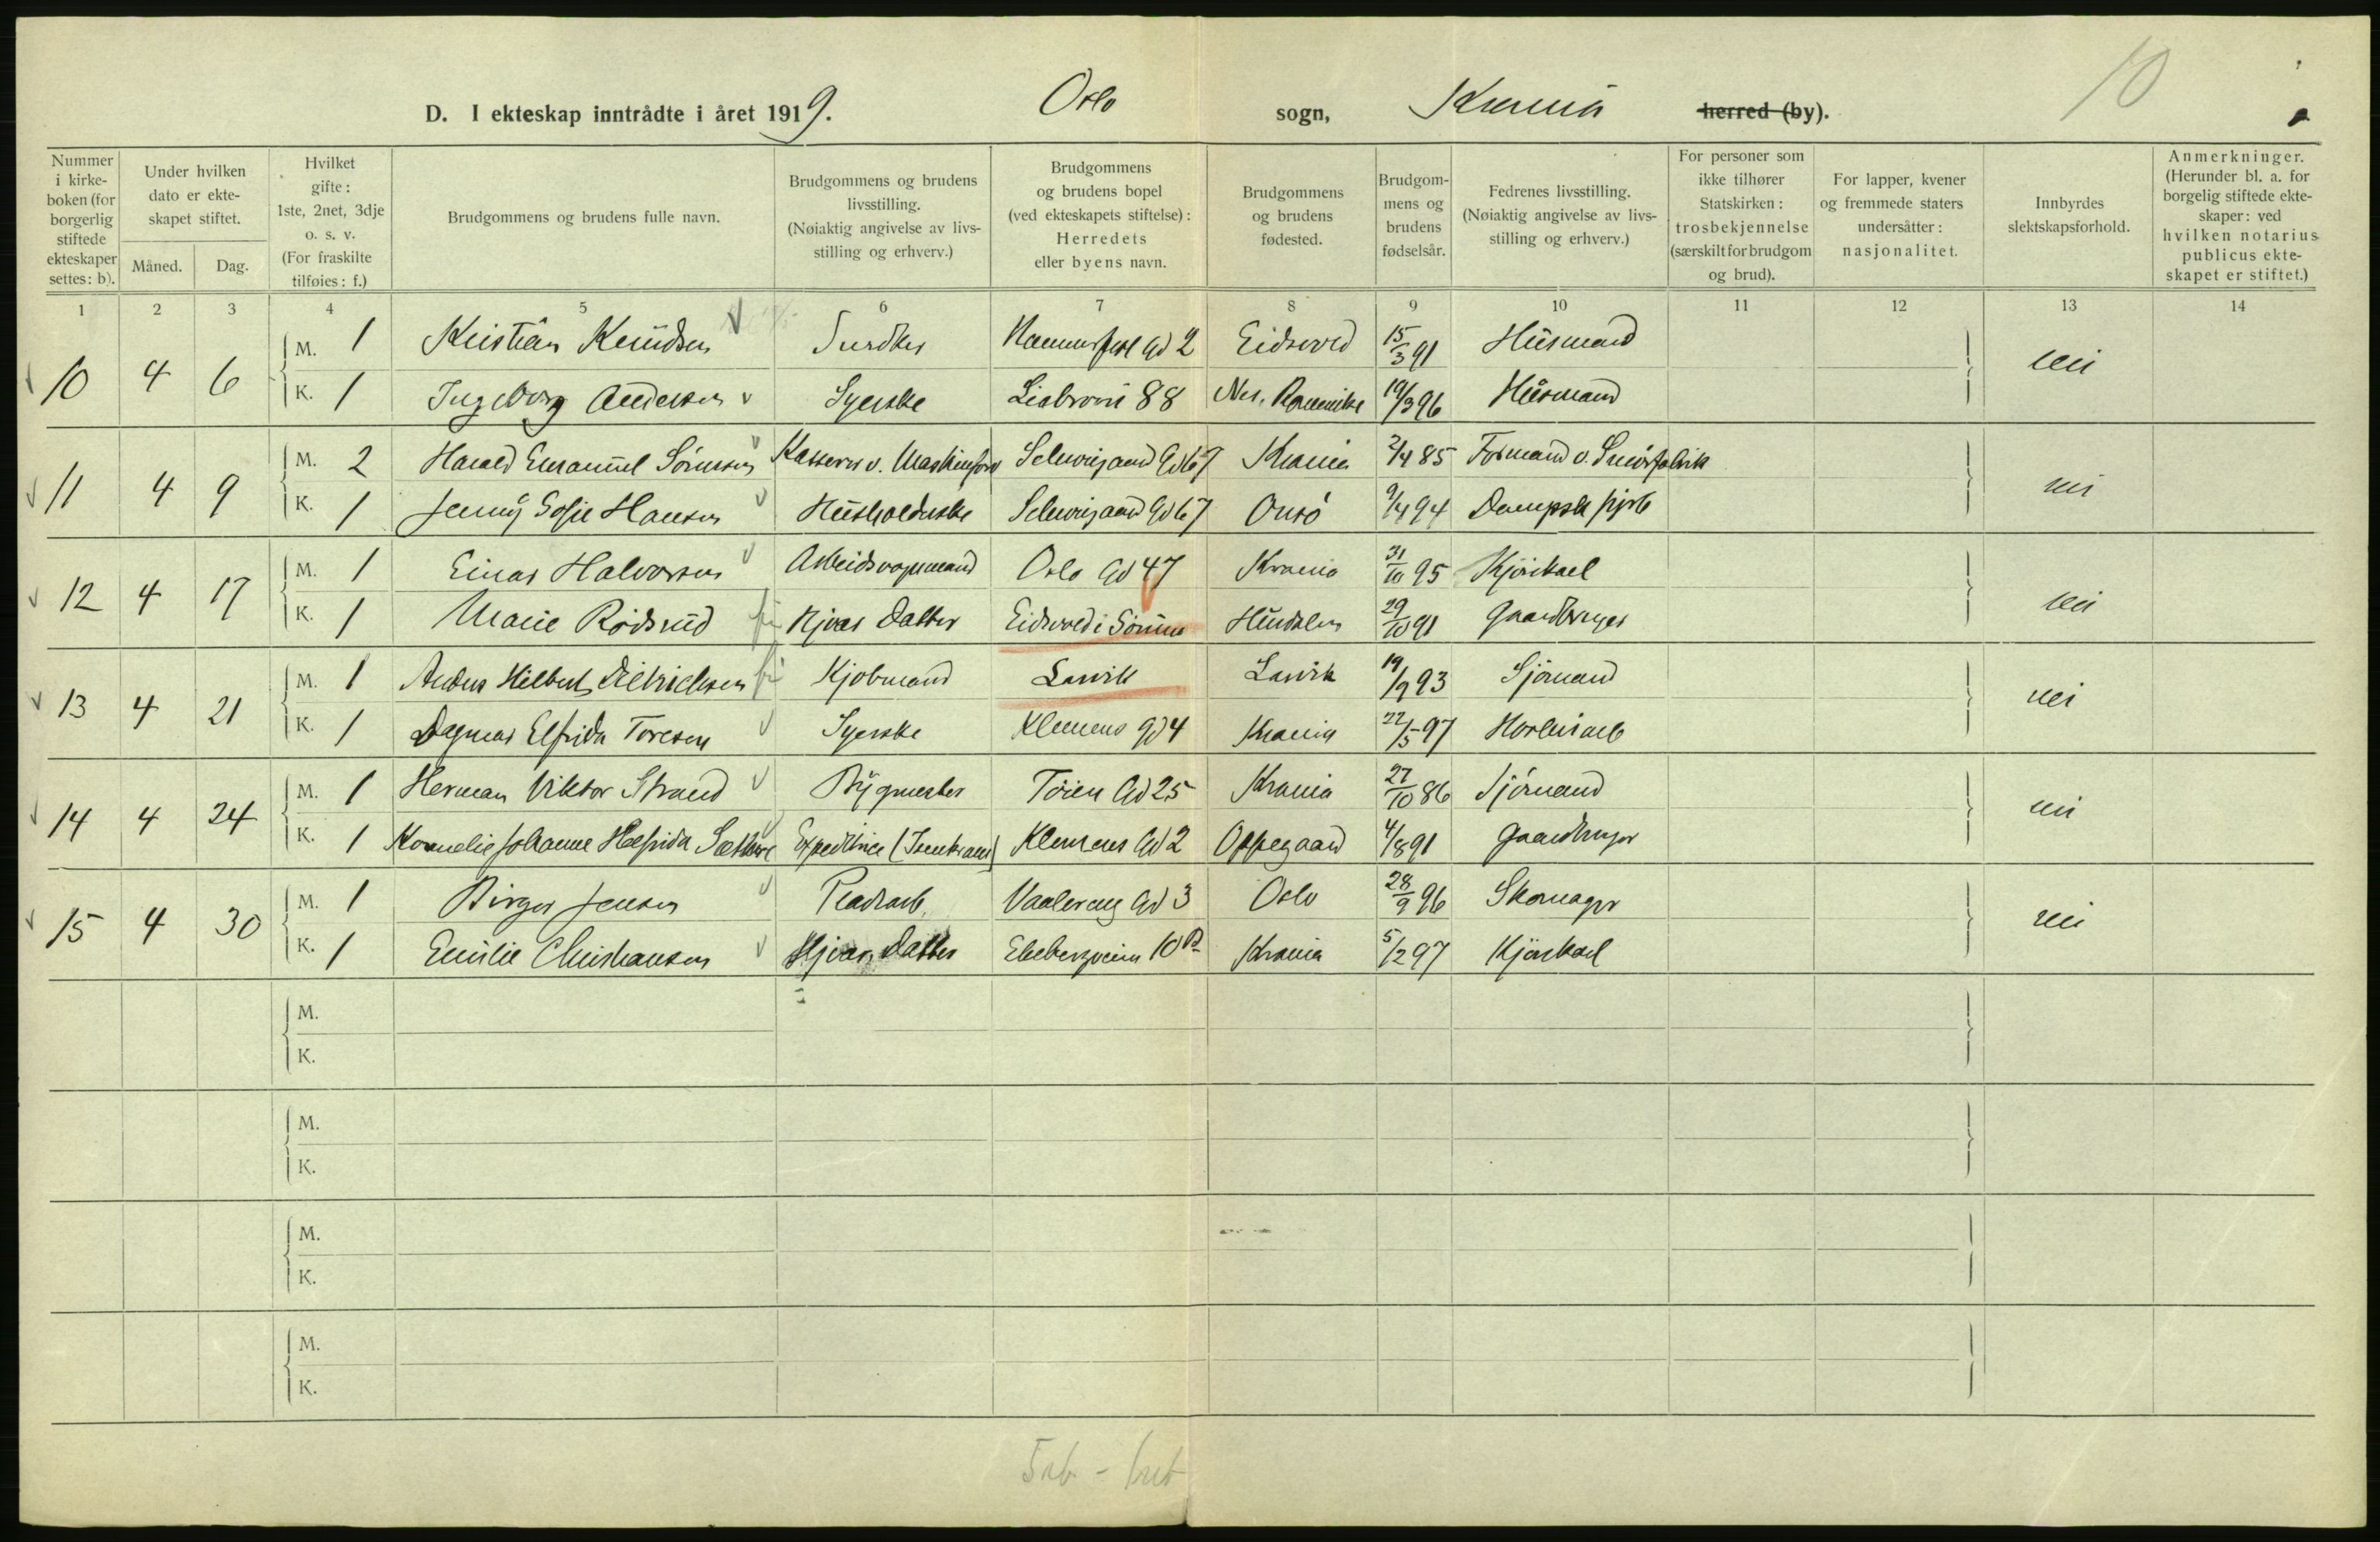 D. I ekteskap inntrådte i året 1919. Oslo sogn, Krania herred (by). 10
Nummer i kirkeboken (for borgerlig stiftede ekteskaper settes: b).
Under hvilken dato er ekteskapet stiftet.
Måned. Dag.
Hvilket gifte: 1ste, 2net, 3dje o. s. v. (For fraskilte tilføies: f.)
Brudgommens og brudens fulle navn.
Brudgommens og brudens livsstilling. (Nøiaktig angivelse av livsstilling og erhverv.)
Brudgommens og brudens bopel (ved ekteskapets stiftelse): Herredets eller byens navn.
Brudgommens og brudens fødested.
Brudgommens og brudens fødselsår.
Fedrenes livsstilling. (Nøiaktig angivelse av livsstilling og erhverv.)
For personer som ikke tilhører Statskirken: trosbekjennelse (særskilt for brudgom og brud).
For lapper, kvener og fremmede staters undersåtter: nasjonalitet.
Innbyrdes slektskapsforhold.
Anmerkninger. (Herunder bl. a. for borgelig stiftede ekteskaper: ved hvilken notarius publicus ekteskapet er stiftet.)
1 2 3 4 5 6 7 8 9 10 11 12 13 14
10 4 6 M. 1 Kristian Knudsen Hammerfest Gd 2 Eidsvold 15/3 91 Husmand nei
K. 1 Ingeborg Andersen Syerske Liabrovei 88 Nes, Romerike 19/3 96 Husmand
11 4 9 M. 2 Harald Emanuel Sørensen Kasserer v. Maskinforr Schweigaard Gd 67 Krania 2/4 85 Formand v. Smörfabrik nei
K. 1 Jenny Sofie Hansen Husholderske Schweigaard Gd 67 Onsö 9/4 94 Dampsk fyrb
12 4 17 M. 1 Einar Halvorsen Arbeidsvognmand Oslo Gd 47 Krania 31/10 95 Kjörekarl nei
K. 1 Marie Rödsrud Hjvær Datter Eidsvold i Sörum Hurdalen 29/10 91 Gaardbruger
13 4 21 M. 1 Anders Hilbert Dietrichsen Kjöbmand Larvik Larvik 19/9 93 Sjömand nei
K. 1 Dagmar Elfrida Toresen Syerske Klemens Gd 4 Krania 22/5 97 Havnearb
14 4 24 M. 1 Herman Viktor Strand Bygmester Töien Gd 25 Krania 27/10 86 Sjömand nei
K. 1 Kornelie Johanne Helfrida Sæthre Expeditrice Klemens Gd 2 Oppegaard 4/8 91 Gaardbruger
15 4 30 M. 1 Birger Jensen Pladsarb. Vaalereng Gd 3 Oslo 28/9 96 Skomager nei
K. 1 Emilie Christiansen Hjvær. Datter Ekebergveien 10 B Krania 5/2 97 Kjörekarl
M.
K.
M.
K.
M.
K.
M.
K.